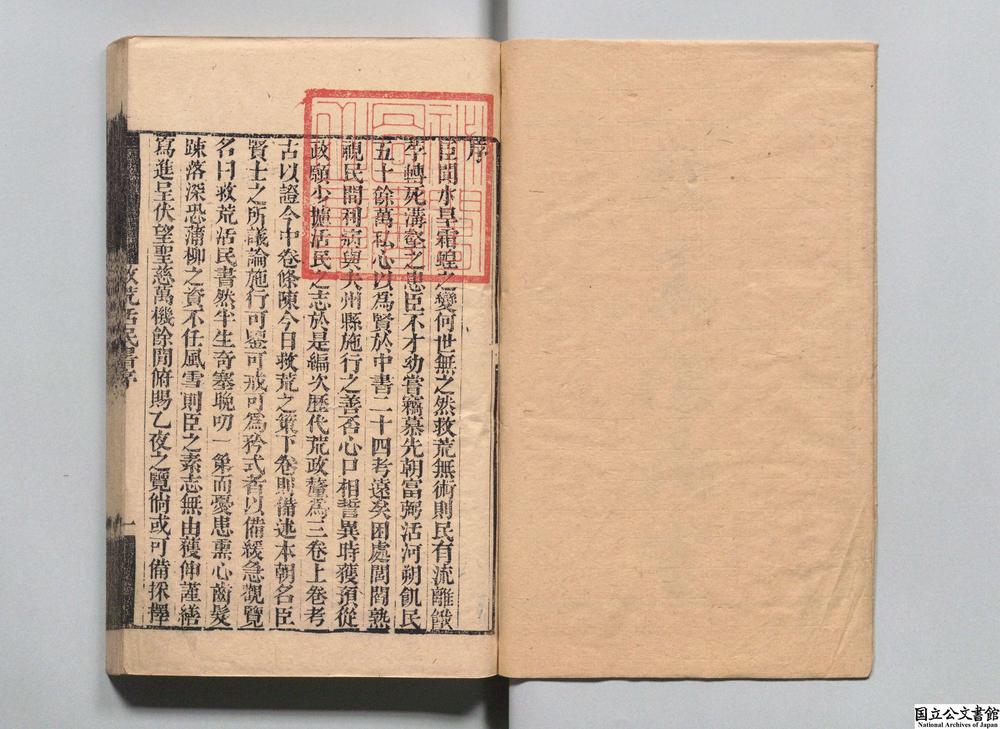 序
臣聞水旱霜蝗之變何世無之然救荒無術則民有流離餓
莩轉死溝壑之患臣不才幼嘗竊慕先朝富弼活河朔飢民
五十餘萬私心以爲賢於中書二十四考遠矣困處閭閻熟
視民間利病與夫州縣施行之善否心口相誓異時獲預從
政願少攄活民之志於是編次歷代荒政釐爲三卷上卷考
古以證今中卷條陳今日救荒之策下卷則備述本朝名臣
賢士之所議論施行可鑒可戒可爲矜式者以備緩急觀覽
名曰救荒活民書然半生奇蹇晚叨一第而憂患熏心齒髮
踈落深恐蒲柳之資不任風雪則臣之素志無由獲伸謹繕
寫進呈伏望聖慈萬機餘閒俯賜乙夜之覽倘或可備採擇
救荒活民書序
一
国立公文書館
National Archives of Japan